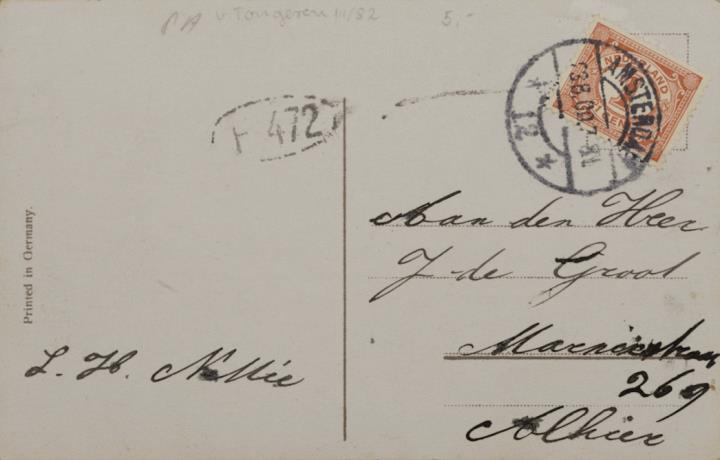 PA v Tongeren 11/82 5,-
F 472
NEDERLAND
AMSTERDAM
12
Printed in Germany.
Aan den Heer
J de Groot
Marnixstraat
269
Alhier
L. H. Nellie